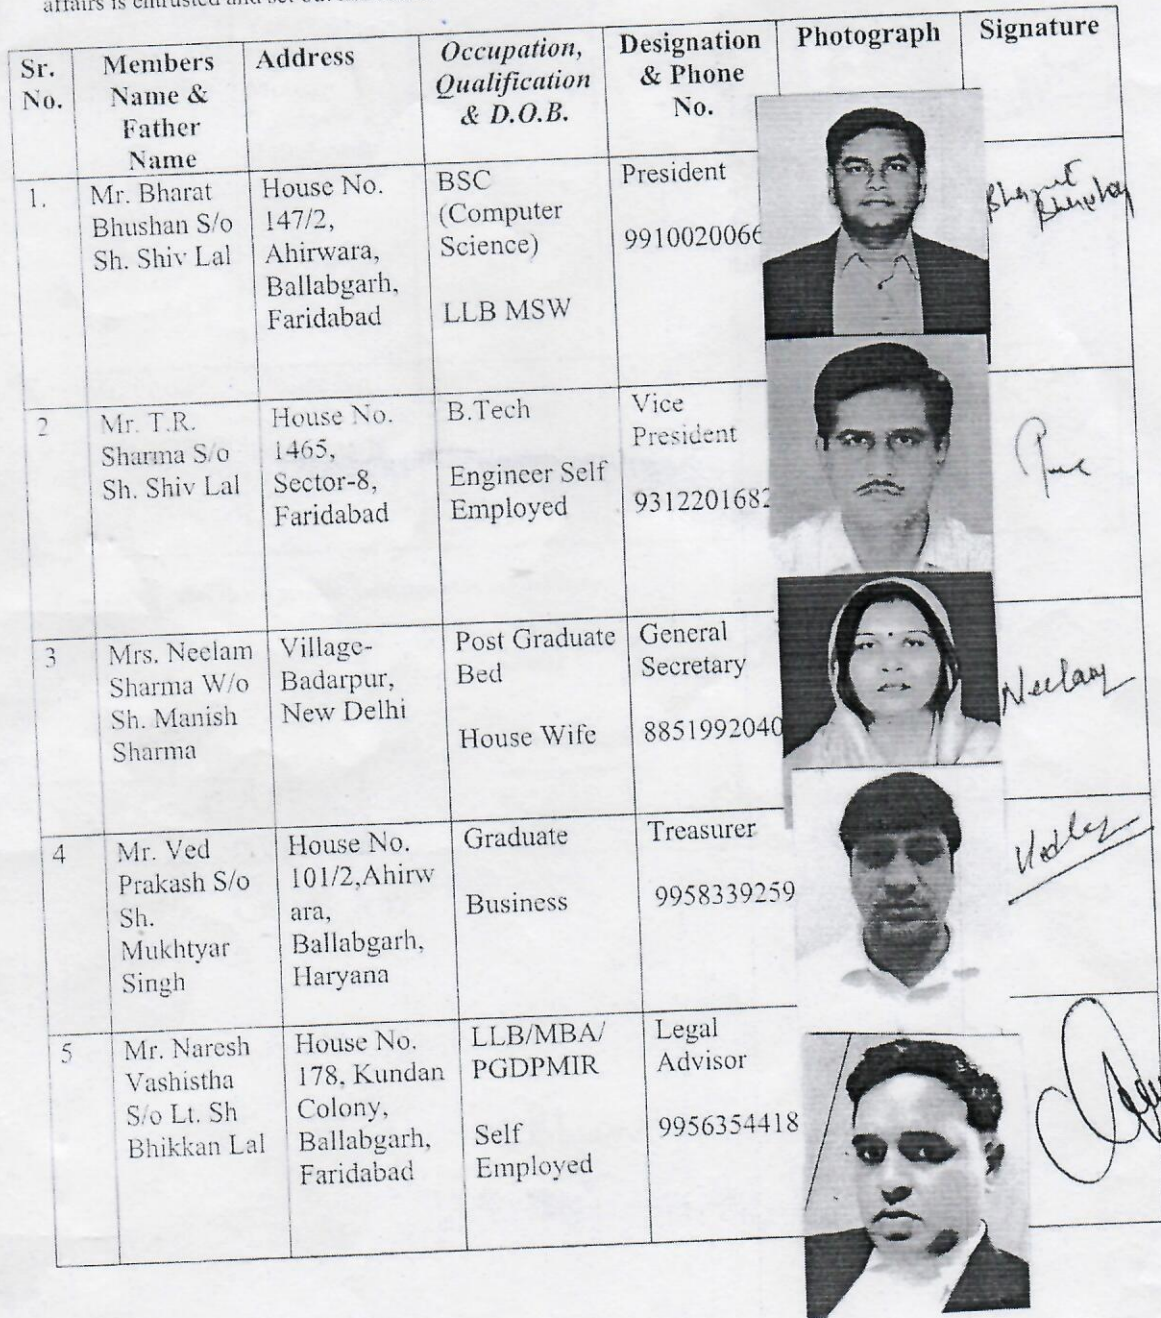 affairs is entrusted and set out
Sr. No. Members Name & Father Name Address Occupation, Qualification & D.O.B. Designation & Phone No. Photograph Signature
1. Mr. Bharat Bhushan S/o Sh. Shiv Lal House No. 147/2, Ahirwara, Ballabgarh, Faridabad BSC (Computer Science) LLB MSW President 9910020066 Bharat Bhushan
2 Mr. T.R. Sharma S/o Sh. Shiv Lal House No. 1465, Sector-8, Faridabad B.Tech Engineer Self Employed Vice President 9312201682
3 Mrs. Neelam Sharma W/o Sh. Manish Sharma Village-Badarpur, New Delhi Post Graduate Bed House Wife General Secretary 8851992040 Neelam
4 Mr. Ved Prakash S/o Sh. Mukhtyar Singh House No. 101/2,Ahirwara, Ballabgarh, Haryana Graduate Business Treasurer 9958339259
5 Mr. Naresh Vashistha S/o Lt. Sh Bhikkan Lal House No. 178, Kundan Colony, Ballabgarh, Faridabad LLB/MBA/PGDPMIR Self Employed Legal Advisor 9956354418